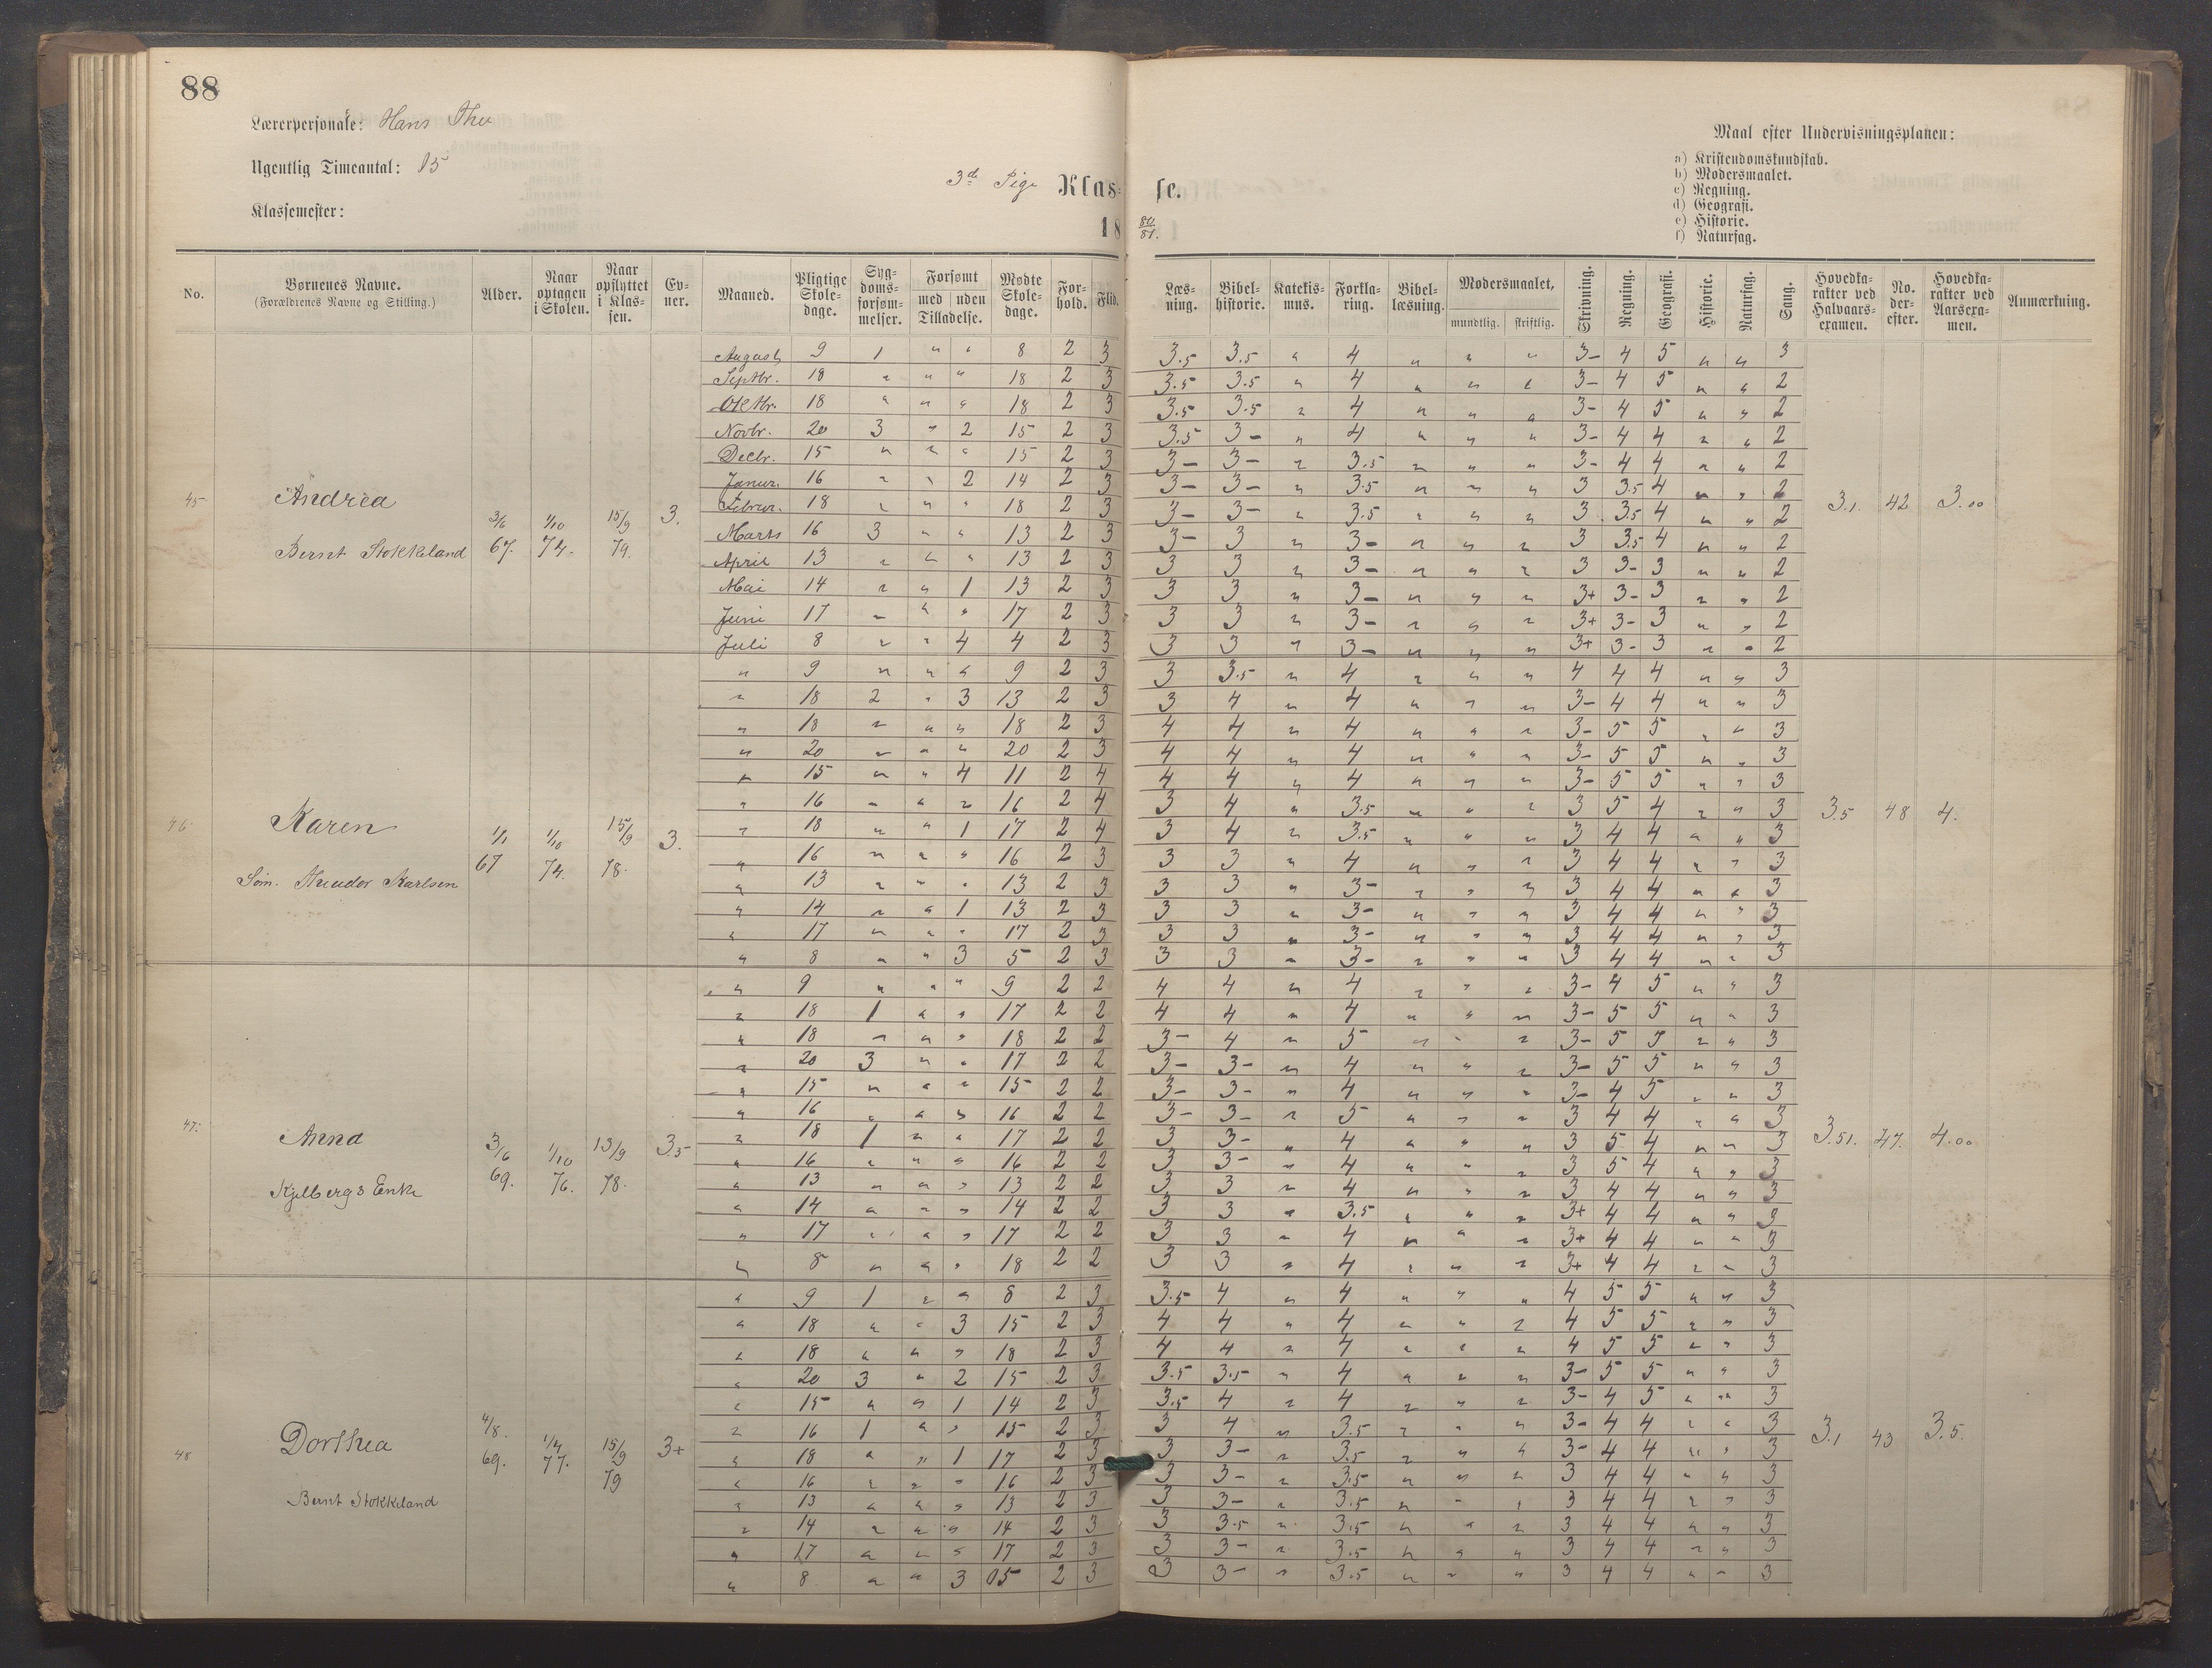 88
Lærerpersonale: Hans Thu
Ugentlig Timeantal: 15
Klassemester:
3de Pige Klas-
se.
18
80/81.
Maal efter Undervisningsplanen:
a) Kristendomskundskab.
b) Modersmaalet.
c) Regning.
d) Geografi.
e) Historie.
f) Naturfag.
No. Børnenes Navne. (Forældrenes Navne og Stilling.) Alder. Naar optagen i Skolen. Naar opflyttet i Klassen. Evner. Maaned. Pligtige Skoledage. Sygdomsforsømmelser. Forsømt med uden Tilladelse. Mødte Skoledage. Forhold. Flid.
Læsning. Bibelhistorie. Katekismus. Forklaring. Bibellæsning. Modersmaalet, mundtlig. skriftlig. Skrivning. Regning. Geografi. Historie. Naturfag. Sang. Hovedkarakter ved Halvaarsexamen. No. derefter. Hovedkarakter ved Aarsexamen. Anmærkning.
45 Andrea
Bernt Stokkeland
3/6 67. 1/10 74. 15/9 79. 3.
3.1. 42 3.00
August 9 1 " " 8 2 3 3.5 3.5 " 4 " " " 3- 4 5 " " 3
Septbr. 18 " " " 18 2 3 3.5 3.5 " 4 " " " 3- 4 5 " " 2
Oktbr. 18 " " " 18 2 3 3.5 3.5 " 4 " " " 3- 4 5 " " 2
Novbr. 20 3 " 2 15 2 3 3.5 3- " 4 " " " 3- 4 4 " " 2
Decbr. 15 " " " 15 2 3 3- 3- " 3.5 " " " 3- 4 4 " " 2
Januar. 16 " " 2 14 2 3 3- 3- " 3.5 " " " 3 3.5 4 " " 2
Februar. 18 " " " 18 2 3 3- 3- " 3.5 " " " 3 3.5 4 " " 2
Marts 16 3 " " 13 2 3 3- 3 " 3- " " " 3 3.5 4 " " 2
April 13 " " " 13 2 3 3 3 " 3- " " " 3 3- 3 " " 2
Mai 14 " " 1 13 2 3 3 3 " 3- " " " 3+ 3- 3 " " 2
Juni 17 " " " 17 2 3 3 3 " 3- " " " 3+ 3- 3 " " 2
Juli 8 " " 4 4 2 3 3 3 " 3- " " " 3+ 3- 3 " " 2
46 Karen
Søm. Karlsen
1/1 67 1/10 74. 15/9 78. 3.
3.5 48 4.
" 9 " " " 9 2 3 3 3.5 " 4 " " " 4 4 4 " " 3
" 18 2 " 3 13 2 3 3 4 " 4 " " " 3- 4 4 " " 3
" 18 " " " 18 2 3 4 4 " 4 " " " 3- 5 5 " " 3
" 20 " " " 20 2 3 4 4 " 4 " " " 3- 5 5 " " 3
" 15 " " 4 11 2 4 4 4 " 4 " " " 3- 5 5 " " 3
" 16 " " " 16 2 4 3 4 " 3.5 " " " 3 5 4 " " 3
" 18 " " 1 17 2 4 3 4 " 3.5 " " " 3 4 4 " " 3
" 16 " " " 16 2 3 3 3 " 4 " " " 3 4 4 " " 3
" 13 " " " 13 2 3 3 3 " 3- " " " 3 4 4 " " 3
" 14 " " 1 13 2 3 3 3 " 3- " " " 3 4 4 " " 3
" 17 " " " 17 2 3 3 3 " 3- " " " 3 4 4 " " 3
" 8 " " 3 5 2 3 3 3 " 3- " " " 3 4 4 " " 3
47. Anna
Kjelbergs Enke
3/6 69. 1/10 76. 13/9 78. 3.5
3.51. 47. 4.00
" 9 " " " 9 2 2 4 4 " 4 " " " 3- 4 5 " " 3
" 18 1 " " 17 2 2 4 4 " 4 " " " 3- 5 5 " " 3
" 18 " " " 18 2 2 3- 4 " 5 " " " 3- 5 5 " " 3
" 20 3 " " 17 2 2 3- 3- " 4 " " " 3- 5 5 " " 3
" 15 " " " 15 2 2 3- 3- " 4 " " " 3- 4 5 " " 3
" 16 " " " 16 2 2 3- 3- " 5 " " " 3 4 4 " " 3
" 18 1 " " 17 2 2 3 3- " 4 " " " 3 5 4 " " 3
" 16 " " " 16 2 2 3 3- " 4 " " " 3 5 4 " " 3
" 13 " " " 13 2 2 3 3 " 4 " " " 3 4 4 " " 3
" 14 " " " 14 2 2 3 3 " 3.5 " " " 3+ 4 4 " " 3
" 17 " " " 17 2 2 3 3 " 4 " " " 3+ 4 4 " " 3
" 8 " " " 18 2 2 3 3 " 4 " " " 3+ 4 4 " " 3
48 Dorthea
Bernt Stokkeland
4/8. 69. 1/4 77. 15/9 79 3+
3.1 43 3.5.
" 9 1 " " 8 2 3 3.5 4 " 4 " " " 4 5 5 " " 3
" 18 " " 3 15 2 3 4 4 " 4 " " " 4 5 5 " " 3
" 18 " " " 18 2 3 4 4 " 4 " " " 4 5 5 " " 3
" 20 3 " 2 15 2 3 3.5 3.5 " 4 " " " 3- 5 5 " " 3
" 15 " " 1 14 2 3 3.5 4 " 4 " " " 3- 4 5 " " 3
" 16 1 " " 15 2 3 3 4 " 3.5 " " " 3- 4 4 " " 3
" 18 " " 1 17 2 3 3 3- " 3.5 " " " 3- 4 4 " " 3
" 16 " " " 16 2 3 3 3- " 3.5 " " " 3 4 4 " " 3
" 13 " " " 13 2 3 3 3- " 3.5 " " " 3 4 4 " " 3
" 14 " " " 14 2 3 3 3.5 " 3.5 " " " 3 4 4 " " 3
" 17 " " " 17 2 3 3 3- " 3.5 " " " 3 4 4 " " 3
" 8 " " 3 05 2 3 3 3- " 3.5 " " " 3 4 4 " " 3